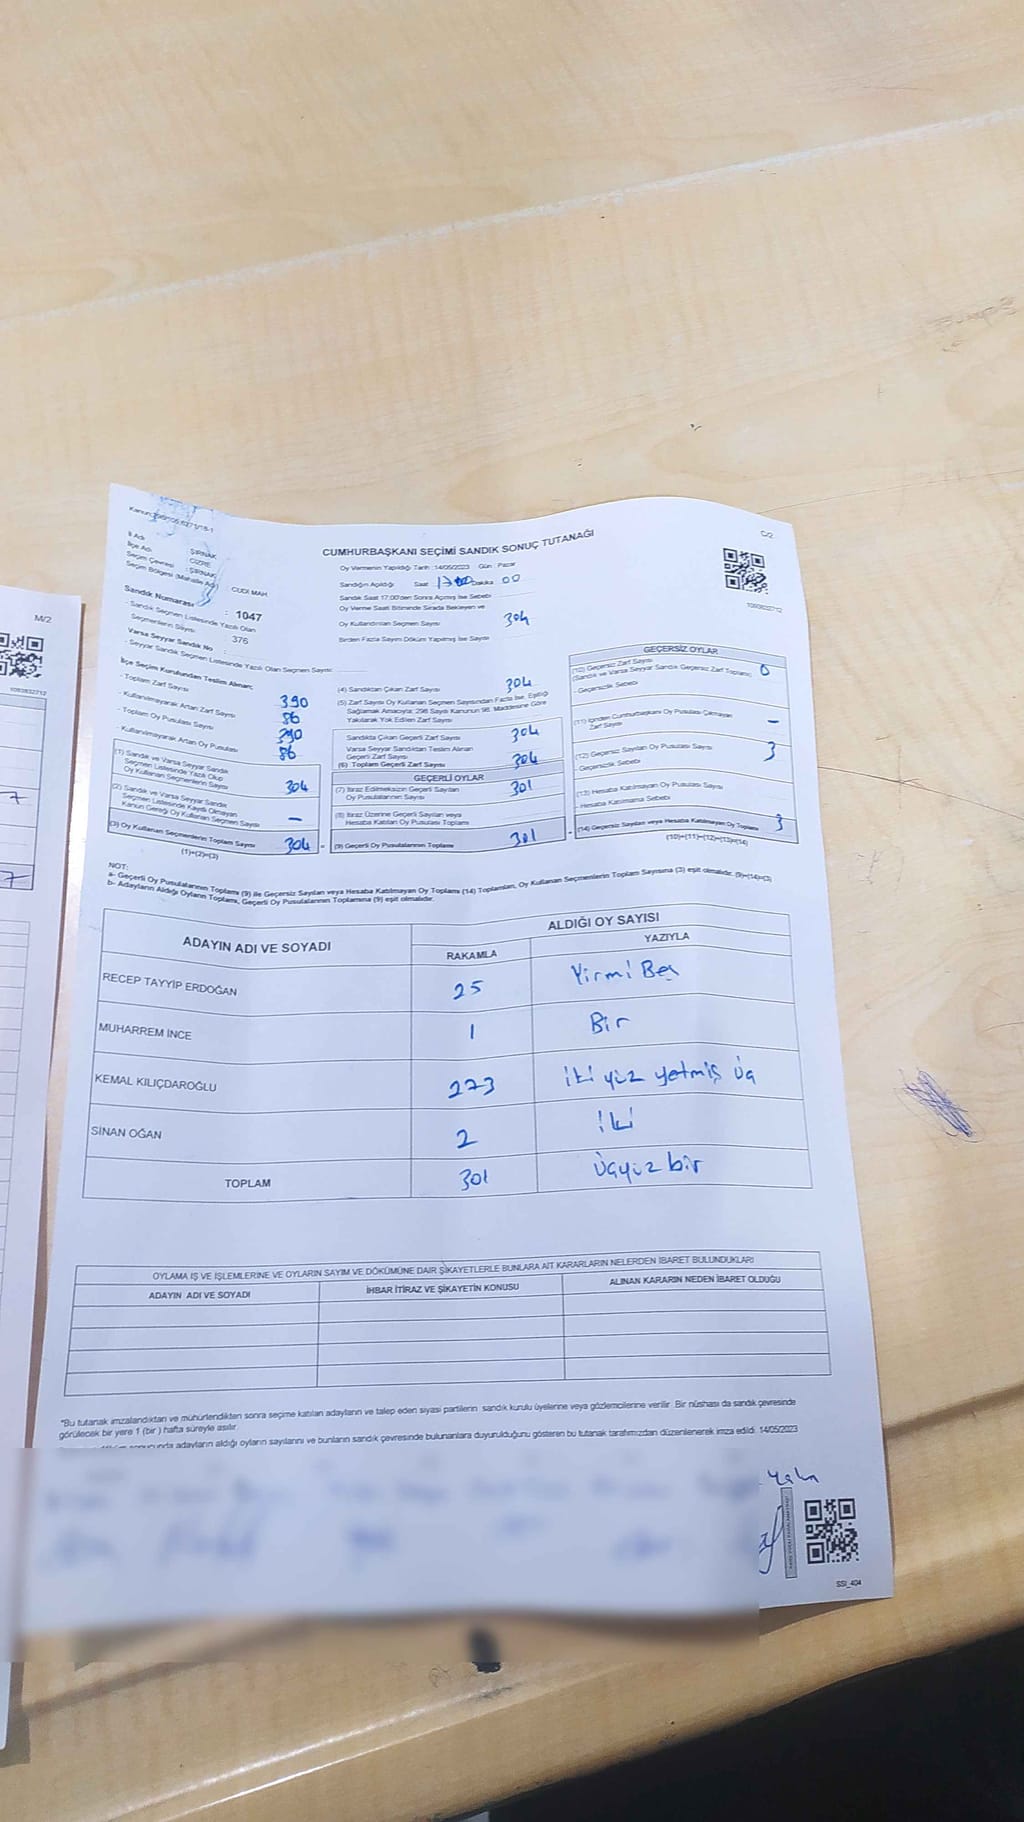 M/2
1093832712
7
7
C/2
CUMHURBAŞKANI SEÇİMİ SANDIK SONUÇ TUTANAĞI
İl Adı : ŞIRNAK
İlçe Adı : CİZRE
Seçim Çevresi : ŞIRNAK
Seçim Bölgesi (Mahalle Adı) CUDİ MAH.
Sandık Numarası : 1047
- Sandık Seçmen Listesinde Yazılı Olan Seçmenlerin Sayısı : 376
Varsa Seyyar Sandık No :
- Seyyar Sandık Seçmen Listesinde Yazılı Olan Seçmen Sayısı:
Oy Vermenin Yapıldığı Tarih :14/05/2023 Gün : Pazar
Sandığın Açıldığı Saat Dakika 00
Sandık Saat 17:00'den Sonra Açılmış İse Sebebi
Oy Verme Saati Bitiminde Sırada Bekleyen ve
Oy Kullandırılan Seçmen Sayısı 304
Birden Fazla Sayım Döküm Yapılmış İse Sayısı
1093832712
İlçe Seçim Kurulundan Teslim Alınan;
- Toplam Zarf Sayısı 390
- Kullanılmayarak Artan Zarf Sayısı 86
- Toplam Oy Pusulası Sayısı 390
- Kullanılmayarak Artan Oy Pusulası 86
(1) Sandık ve Varsa Seyyar Sandık
Seçmen Listesinde Yazılı Olup
Oy Kullanan Seçmenlerin Sayısı 304
(2) Sandık ve Varsa Seyyar Sandık
Seçmen Listesinde Kayıtlı Olmayan
Kanun Gereği Oy Kullanan Seçmen Sayısı –
(3) Oy Kullanan Seçmenlerin Toplam Sayısı 304
(1)+(2)=(3)
(4) Sandıktan Çıkan Zarf Sayısı 304
(5) Zarf Sayısı Oy Kullanan Seçmen Sayısından Fazla İse, Eşitliği
Sağlamak Amacıyla; 298 Sayılı Kanunun 98. Maddesine Göre
Yakılarak Yok Edilen Zarf Sayısı
Sandıkta Çıkan Geçerli Zarf Sayısı 304
Varsa Seyyar Sandıktan Teslim Alınan
Geçerli Zarf Sayısı
(6) Toplam Geçerli Zarf Sayısı 304
GEÇERLİ OYLAR
(7) İtiraz Edilmeksizin Geçerli Sayılan
Oy Pusulalarının Sayısı 301
(8) İtiraz Üzerine Geçerli Sayılan veya
Hesaba Katılan Oy Pusulası Toplamı
(9) Geçerli Oy Pusulalarının Toplamı 301
GEÇERSİZ OYLAR
(10) Geçersiz Zarf Sayısı 0
(Sandık ve Varsa Seyyar Sandık Geçersiz Zarf Toplamı)
- Geçersizlik Sebebi
(11) İçinden Cumhurbaşkanı Oy Pusulası Çıkmayan
Zarf Sayısı –
(12) Geçersiz Sayılan Oy Pusulası Sayısı 3
- Geçersizlik Sebebi
(13) Hesaba Katılmayan Oy Pusulası Sayısı
- Hesaba Katılmama Sebebi
(14) Geçersiz Sayılan veya Hesaba Katılmayan Oy Toplamı 3
(10)+(11)+(12)+(13)=(14)
NOT:
a- Geçerli Oy Pusulalarının Toplamı (9) ile Geçersiz Sayılan veya Hesaba Katılmayan Oy Toplamı (14) Toplamları, Oy Kullanan Seçmenlerin Toplam Sayısına (3) eşit olmalıdır. (9)+(14)=(3)
b- Adayların Aldığı Oyların Toplamı, Geçerli Oy Pusulalarının Toplamına (9) eşit olmalıdır.
ADAYIN ADI VE SOYADI ALDIĞI OY SAYISI
RAKAMLA YAZIYLA
RECEP TAYYİP ERDOĞAN 25 Yirmi Beş
MUHARREM İNCE 1 Bir
KEMAL KILIÇDAROĞLU 273 iki yüz yetmiş üç
SİNAN OĞAN 2 iki
TOPLAM 301 üçyüz bir
OYLAMA İŞ VE İŞLEMLERİNE VE OYLARIN SAYIM VE DÖKÜMÜNE DAİR ŞİKAYETLERLE BUNLARA AİT KARARLARIN NELERDEN İBARET BULUNDUKLARI
ADAYIN ADI VE SOYADI İHBAR İTİRAZ VE ŞİKAYETİN KONUSU ALINAN KARARIN NEDEN İBARET OLDUĞU
"Bu tutanak imzalandıktan ve mühürlendikten sonra seçime katılan adayların ve talep eden siyasi partilerin sandık kurulu üyelerine veya gözlemcilerine verilir. Bir nüshası da sandık çevresinde
görülecek bir yere 1 (bir) hafta süreyle asılır.
sonucunda adayların aldığı oyların sayılarını ve bunların sandık çevresinde bulunanlara duyurulduğunu gösteren bu tutanak tarafımızdan düzenlenerek imza edildi. 14/05/2023
SSI_404